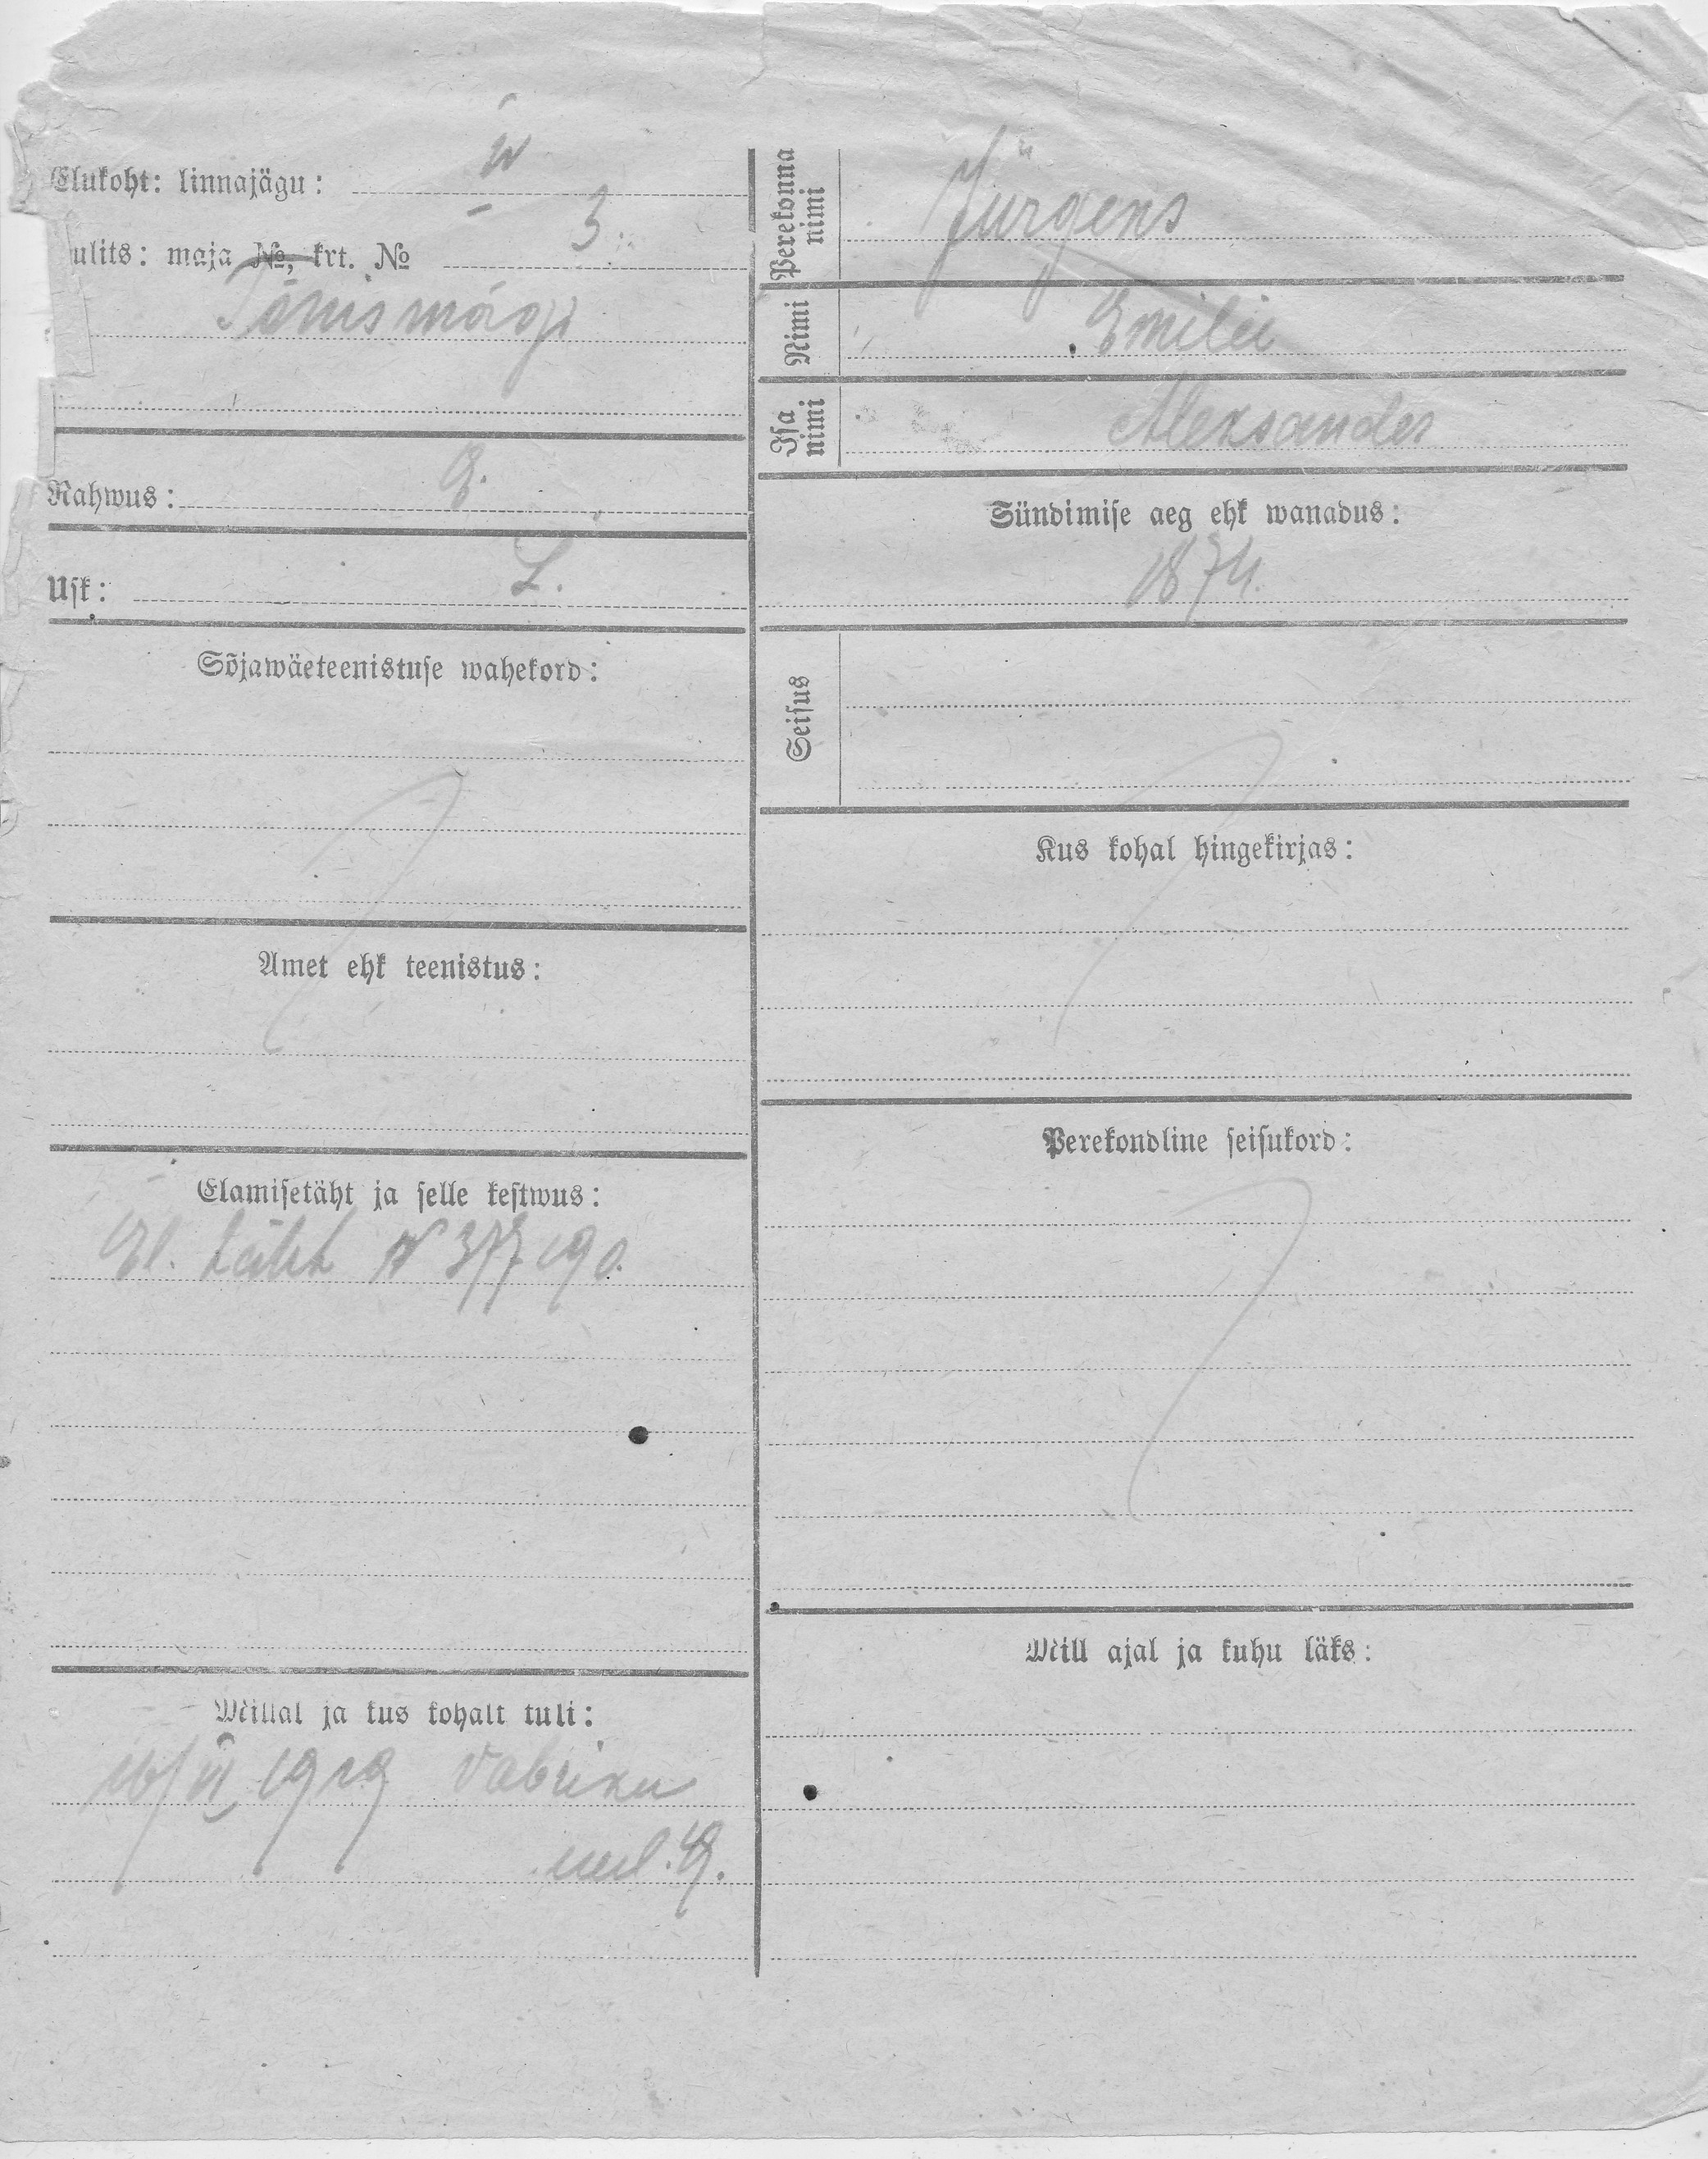 Elukoht: linnajägu: IV
ulits: maja №, krt. № 3.
Tõnismägi
Rahwus: E.
Usk: L.
Sõjawäeteenistuse wahekord:
Amet ehk teenistus:
Elamisetäht ja selle kestwus:
El. täht N 377190.
Millal ja kus kohalt tuli:
1919 Vabriku
Perekonna nimi Jürgens
Nimi Emilie
Isa nimi Aleksander
Sündimise aeg ehk wanadus:
1874.
Seisus
Kus kohal hingekirjas:
Perekondline seisukord:
Mill ajal ja kuhu läks: